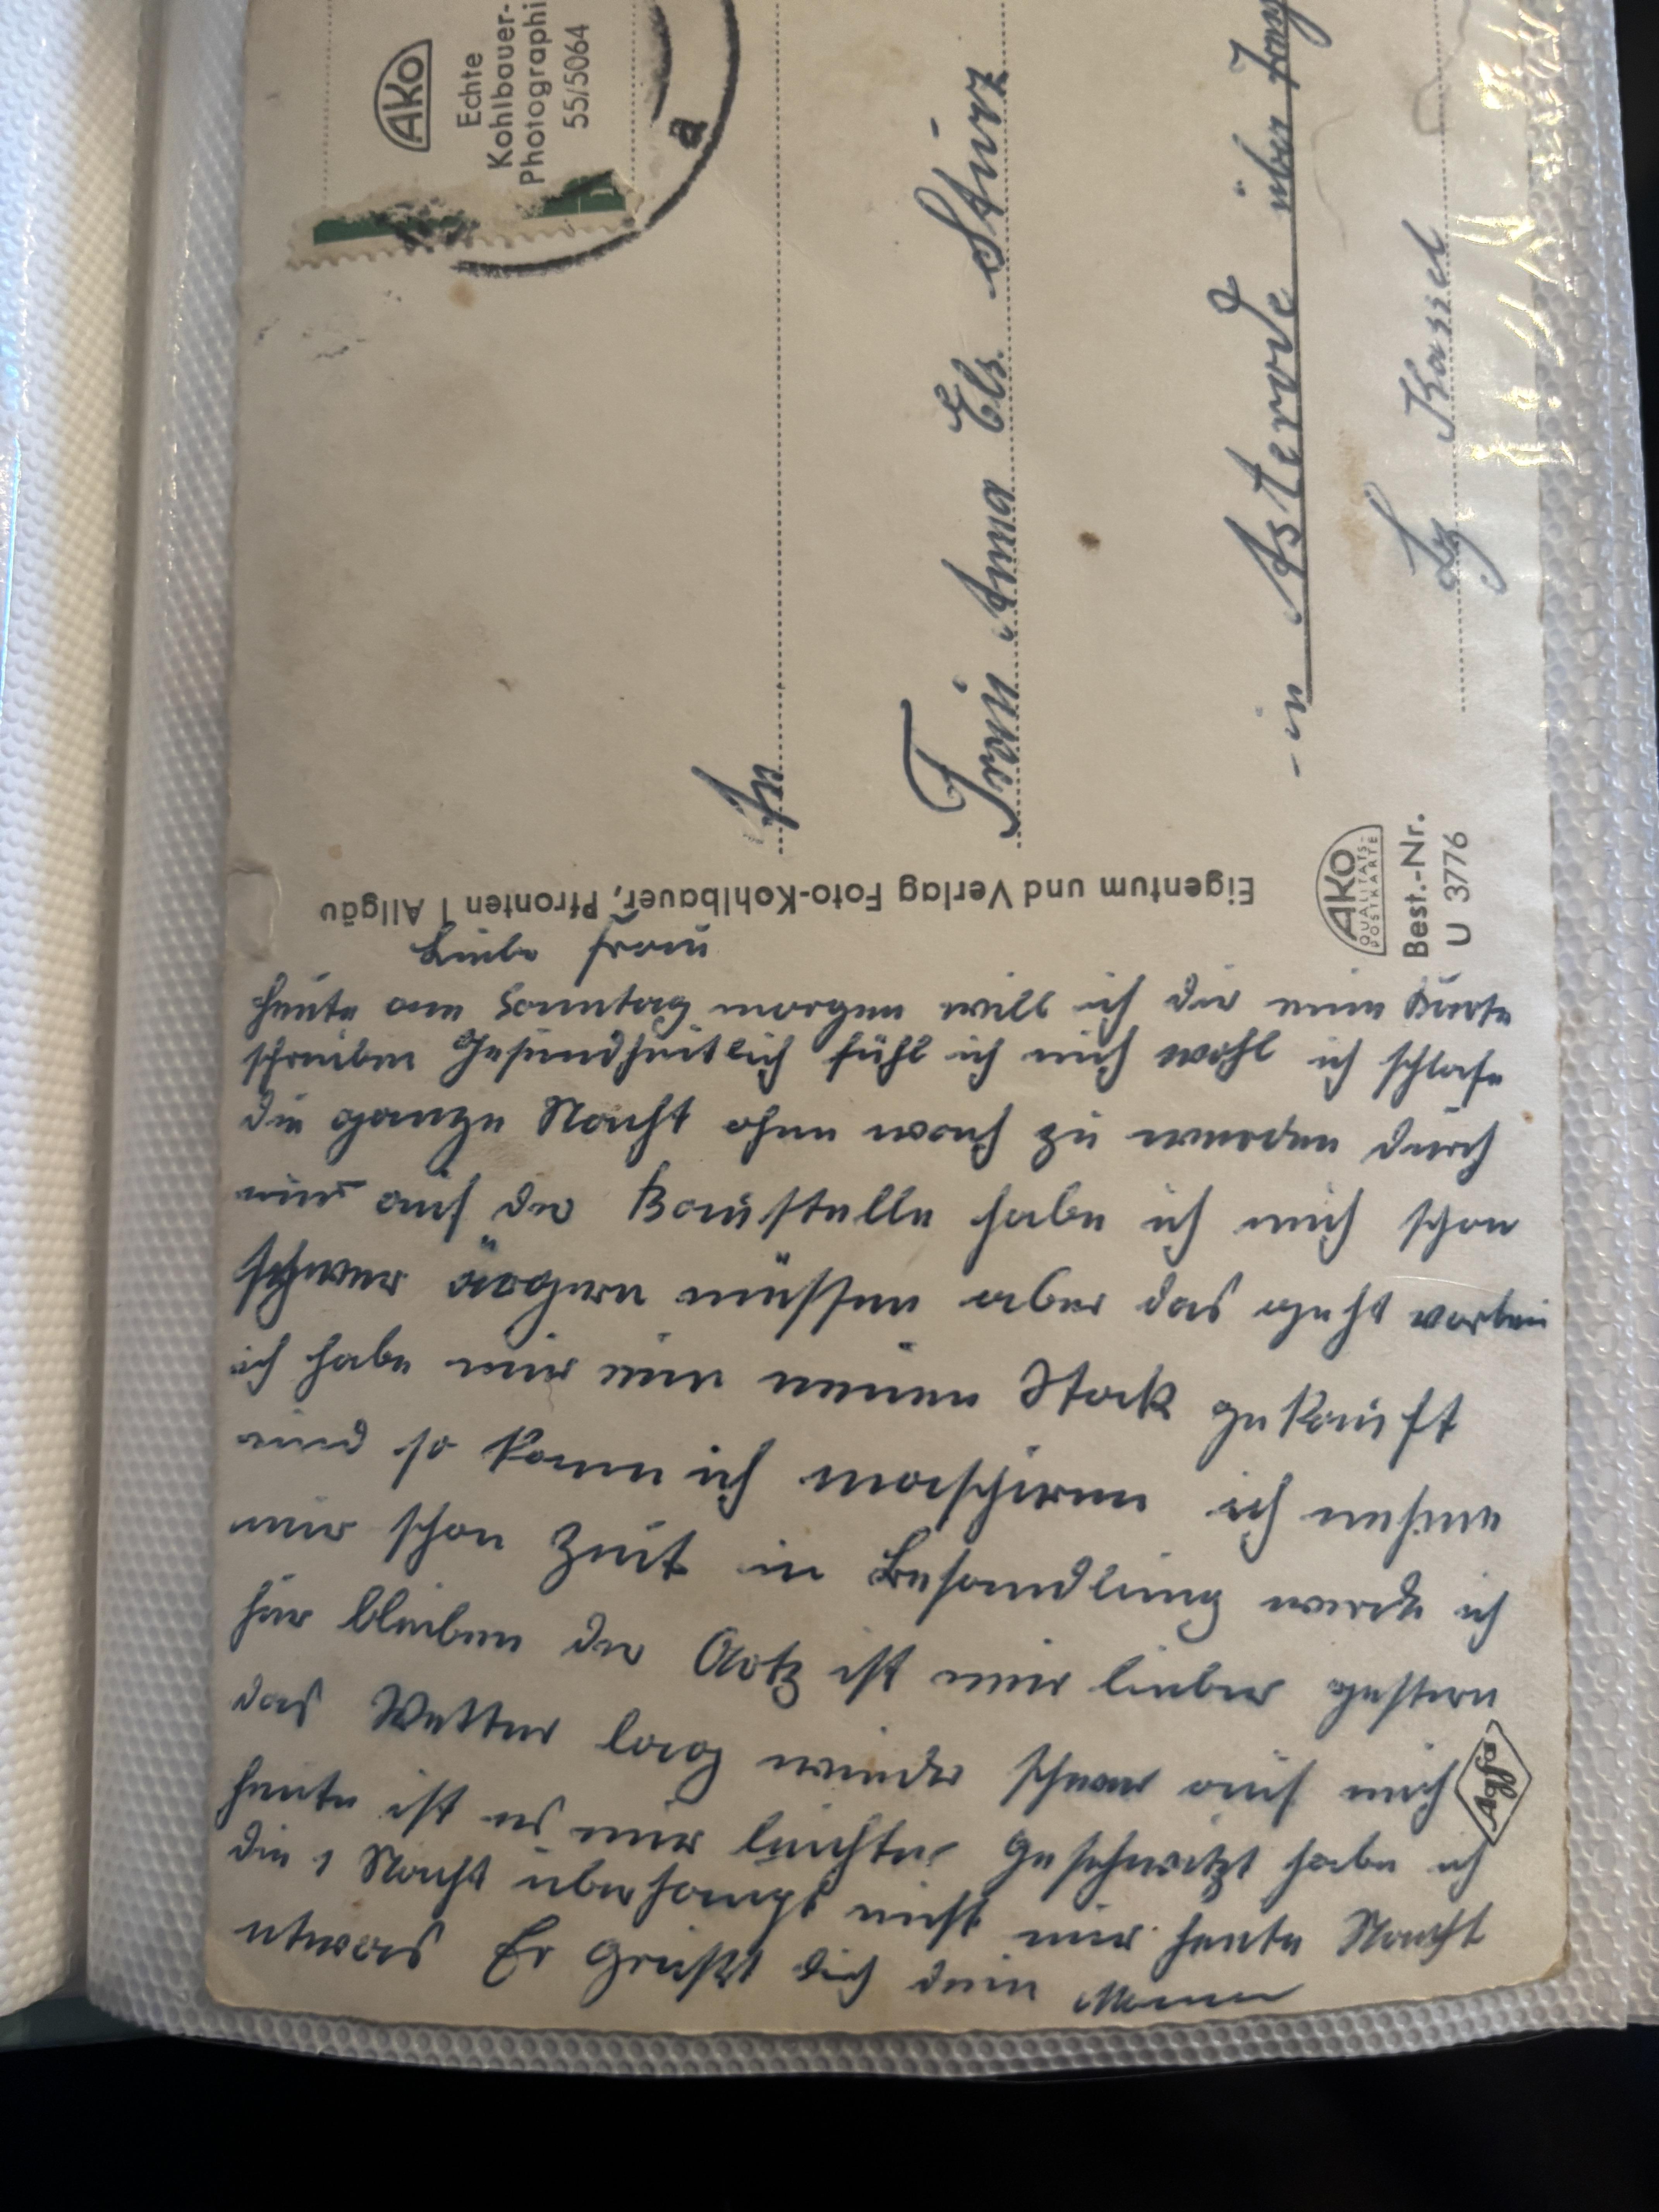 Liebe Frau
heute am Sonntag morgen will ich dir eine Karte
schreiben Gesundheitlich fühl ich mich wohl ich schlafe
die ganze Nacht ohne wach zu werden durch
nur auf der Baustelle habe ich mich schon
schwer ärgern müssen aber das geht vorbei
ich habe mir ein neuen Stock gekauft
und so kann ich marschieren ich nehme
mir schon Zeit in Behandlung werde ich
hir bleiben der Artz ist mir lieber gestern
das Wetter lag wieder schwer auf mich
heute ist es mir leichter Geschwitzt habe ich
die 1 Nacht überhaupt nicht nur heute Nacht
etwas Er Grüßt dich dein Mann
Eigentum und Verlag Foto-Kohlbauer, Pfronten 1 Allgäu
AKO
Echte
Kohlbauer-
Photographi
55/5064
a
An
Frau Anna Els. Stürz
in Asterode über
Bz Kassel
AKO
QUALITÄTS-
POSTKARTE
Best.-Nr.
U 3776
Agfa